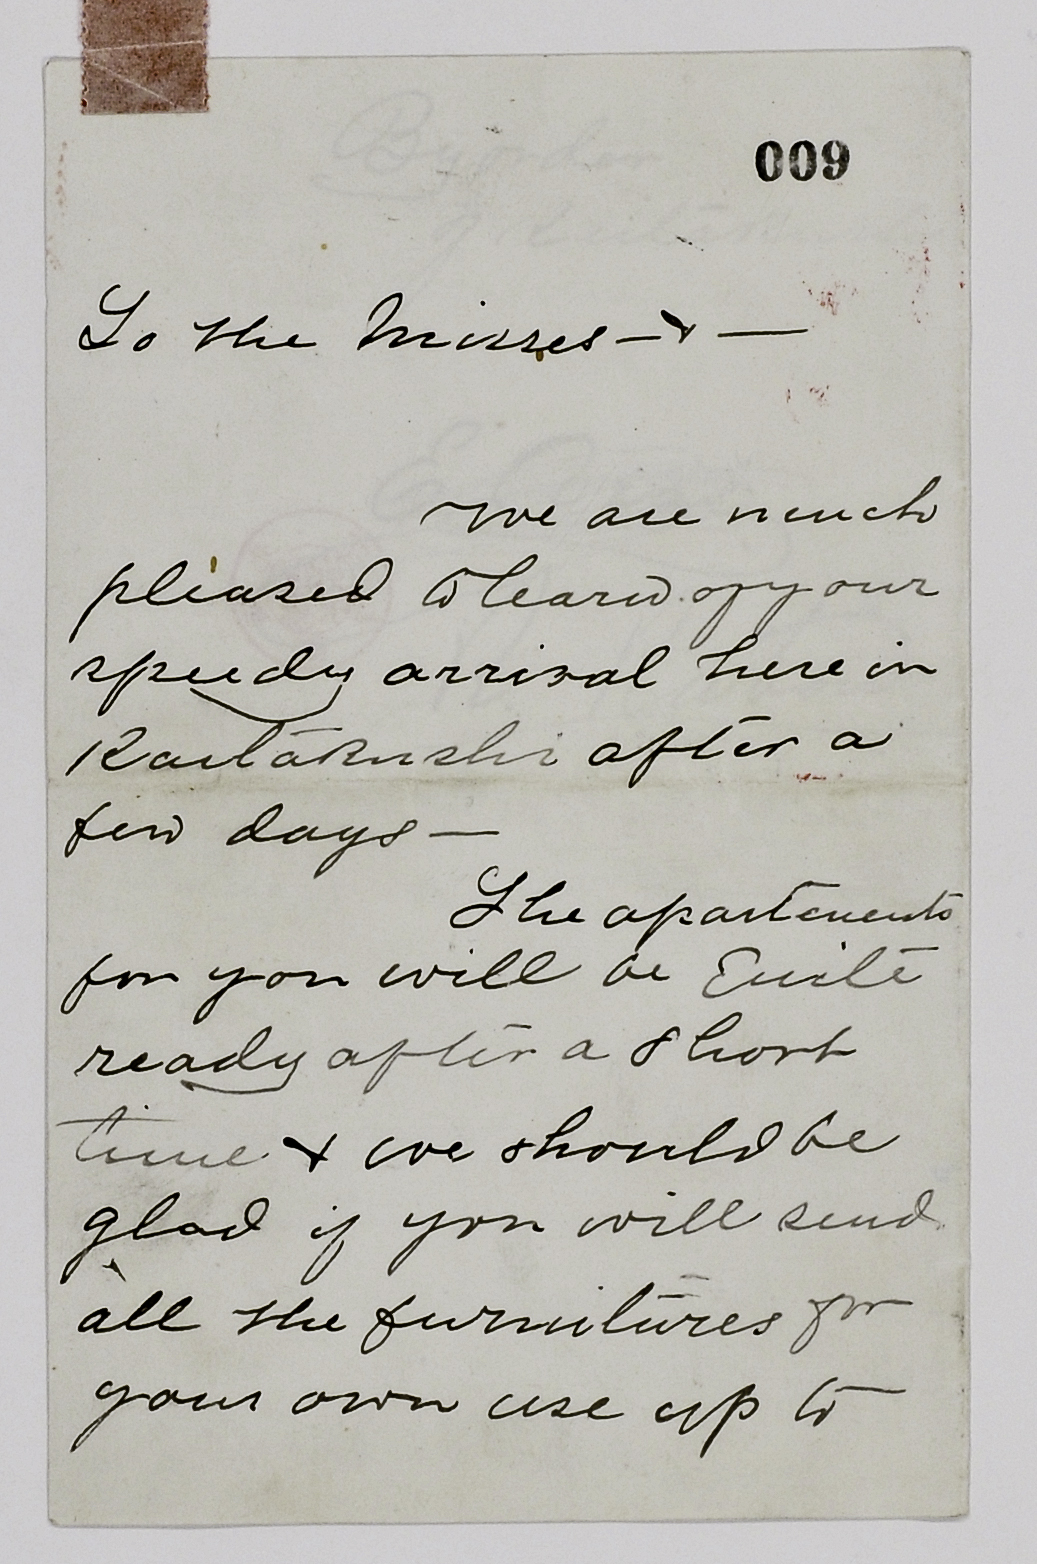 009
To the Misses — & —
We are much
pleased to learn of your
speedy arrival here in
Kaitakushi after a
few days —
The apartements
for you will be quite
ready after a short
time & we should be
glad if you will send
all the furnitures for
your own use up to